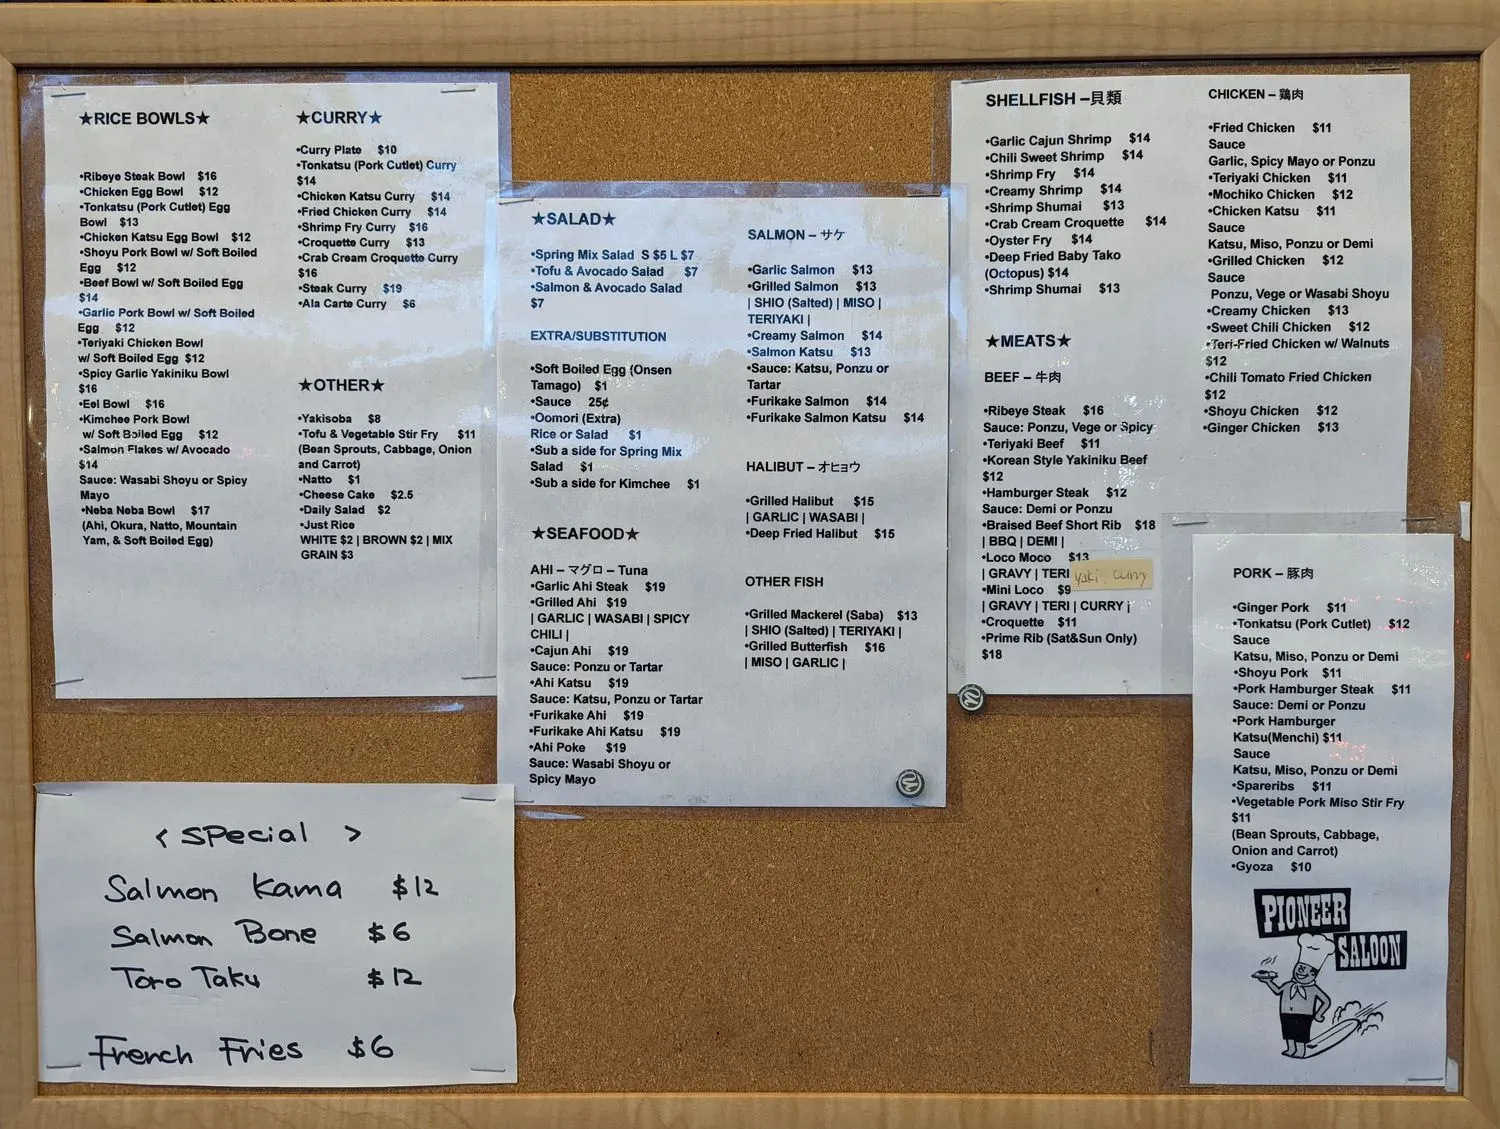 ★RICE BOWLS★
•Ribeye Steak Bowl $16
•Chicken Egg Bowl $12
•Tonkatsu (Pork Cutlet) Egg
Bowl $13
•Chicken Katsu Egg Bowl $12
•Shoyu Pork Bowl w/ Soft Boiled
Egg $12
•Beef Bowl w/ Soft Boiled Egg
$14
•Garlic Pork Bowl w/ Soft Boiled
Egg $12
•Teriyaki Chicken Bowl
w/ Soft Boiled Egg $12
•Spicy Garlic Yakiniku Bowl
$16
•Eel Bowl $16
•Kimchee Pork Bowl
w/ Soft Boiled Egg $12
•Salmon Flakes w/ Avocado
$14
Sauce: Wasabi Shoyu or Spicy
Mayo
•Neba Neba Bowl $17
(Ahi, Okura, Natto, Mountain
Yam, & Soft Boiled Egg)
★CURRY★
•Curry Plate $10
•Tonkatsu (Pork Cutlet) Curry
$14
•Chicken Katsu Curry $14
•Fried Chicken Curry $14
•Shrimp Fry Curry $16
•Croquette Curry $13
•Crab Cream Croquette Curry
$16
•Steak Curry $19
•Ala Carte Curry $6
★OTHER★
•Yakisoba $8
•Tofu & Vegetable Stir Fry $11
(Bean Sprouts, Cabbage, Onion
and Carrot)
•Natto $1
•Cheese Cake $2.5
•Daily Salad $2
•Just Rice
WHITE $2 | BROWN $2 | MIX
GRAIN $3
★SALAD★
•Spring Mix Salad S $5 L $7
•Tofu & Avocado Salad $7
•Salmon & Avocado Salad
$7
EXTRA/SUBSTITUTION
•Soft Boiled Egg (Onsen
Tamago) $1
•Sauce 25¢
•Oomori (Extra)
Rice or Salad $1
•Sub a side for Spring Mix
Salad $1
•Sub a side for Kimchee $1
★SEAFOOD★
AHI – マグロ – Tuna
•Garlic Ahi Steak $19
•Grilled Ahi $19
| GARLIC | WASABI | SPICY
CHILI |
•Cajun Ahi $19
Sauce: Ponzu or Tartar
•Ahi Katsu $19
Sauce: Katsu, Ponzu or Tartar
•Furikake Ahi $19
•Furikake Ahi Katsu $19
•Ahi Poke $19
Sauce: Wasabi Shoyu or
Spicy Mayo
SALMON – サケ
•Garlic Salmon $13
•Grilled Salmon $13
| SHIO (Salted) | MISO |
TERIYAKI |
•Creamy Salmon $14
•Salmon Katsu $13
•Sauce: Katsu, Ponzu or
Tartar
•Furikake Salmon $14
•Furikake Salmon Katsu $14
HALIBUT – オヒョウ
•Grilled Halibut $15
| GARLIC | WASABI |
•Deep Fried Halibut $15
OTHER FISH
•Grilled Mackerel (Saba) $13
| SHIO (Salted) | TERIYAKI |
•Grilled Butterfish $16
| MISO | GARLIC |
SHELLFISH –貝類
•Garlic Cajun Shrimp $14
•Chili Sweet Shrimp $14
•Shrimp Fry $14
•Creamy Shrimp $14
•Shrimp Shumai $13
•Crab Cream Croquette $14
•Oyster Fry $14
•Deep Fried Baby Tako
(Octopus) $14
•Shrimp Shumai $13
★MEATS★
BEEF – 牛肉
•Ribeye Steak $16
Sauce: Ponzu, Vege or Spicy
•Teriyaki Beef $11
•Korean Style Yakiniku Beef
$12
•Hamburger Steak $12
Sauce: Demi or Ponzu
•Braised Beef Short Rib $18
| BBQ | DEMI |
•Loco Moco $13
| GRAVY | TERI
yaki. curry
•Mini Loco $9
| GRAVY | TERI | CURRY |
•Croquette $11
•Prime Rib (Sat&Sun Only)
$18
CHICKEN – 鶏肉
•Fried Chicken $11
Sauce
Garlic, Spicy Mayo or Ponzu
•Teriyaki Chicken $11
•Mochiko Chicken $12
•Chicken Katsu $11
Sauce
Katsu, Miso, Ponzu or Demi
•Grilled Chicken $12
Sauce
Ponzu, Vege or Wasabi Shoyu
•Creamy Chicken $13
•Sweet Chili Chicken $12
•Teri-Fried Chicken w/ Walnuts
$12
•Chili Tomato Fried Chicken
$12
•Shoyu Chicken $12
•Ginger Chicken $13
PORK – 豚肉
•Ginger Pork $11
•Tonkatsu (Pork Cutlet) $12
Sauce
Katsu, Miso, Ponzu or Demi
•Shoyu Pork $11
•Pork Hamburger Steak $11
Sauce: Demi or Ponzu
•Pork Hamburger
Katsu(Menchi) $11
Sauce
Katsu, Miso, Ponzu or Demi
•Spareribs $11
•Vegetable Pork Miso Stir Fry
$11
(Bean Sprouts, Cabbage,
Onion and Carrot)
•Gyoza $10
PIONEER
SALOON
< Special >
Salmon Kama $12
Salmon Bone $6
Toro Taku $12
French Fries $6